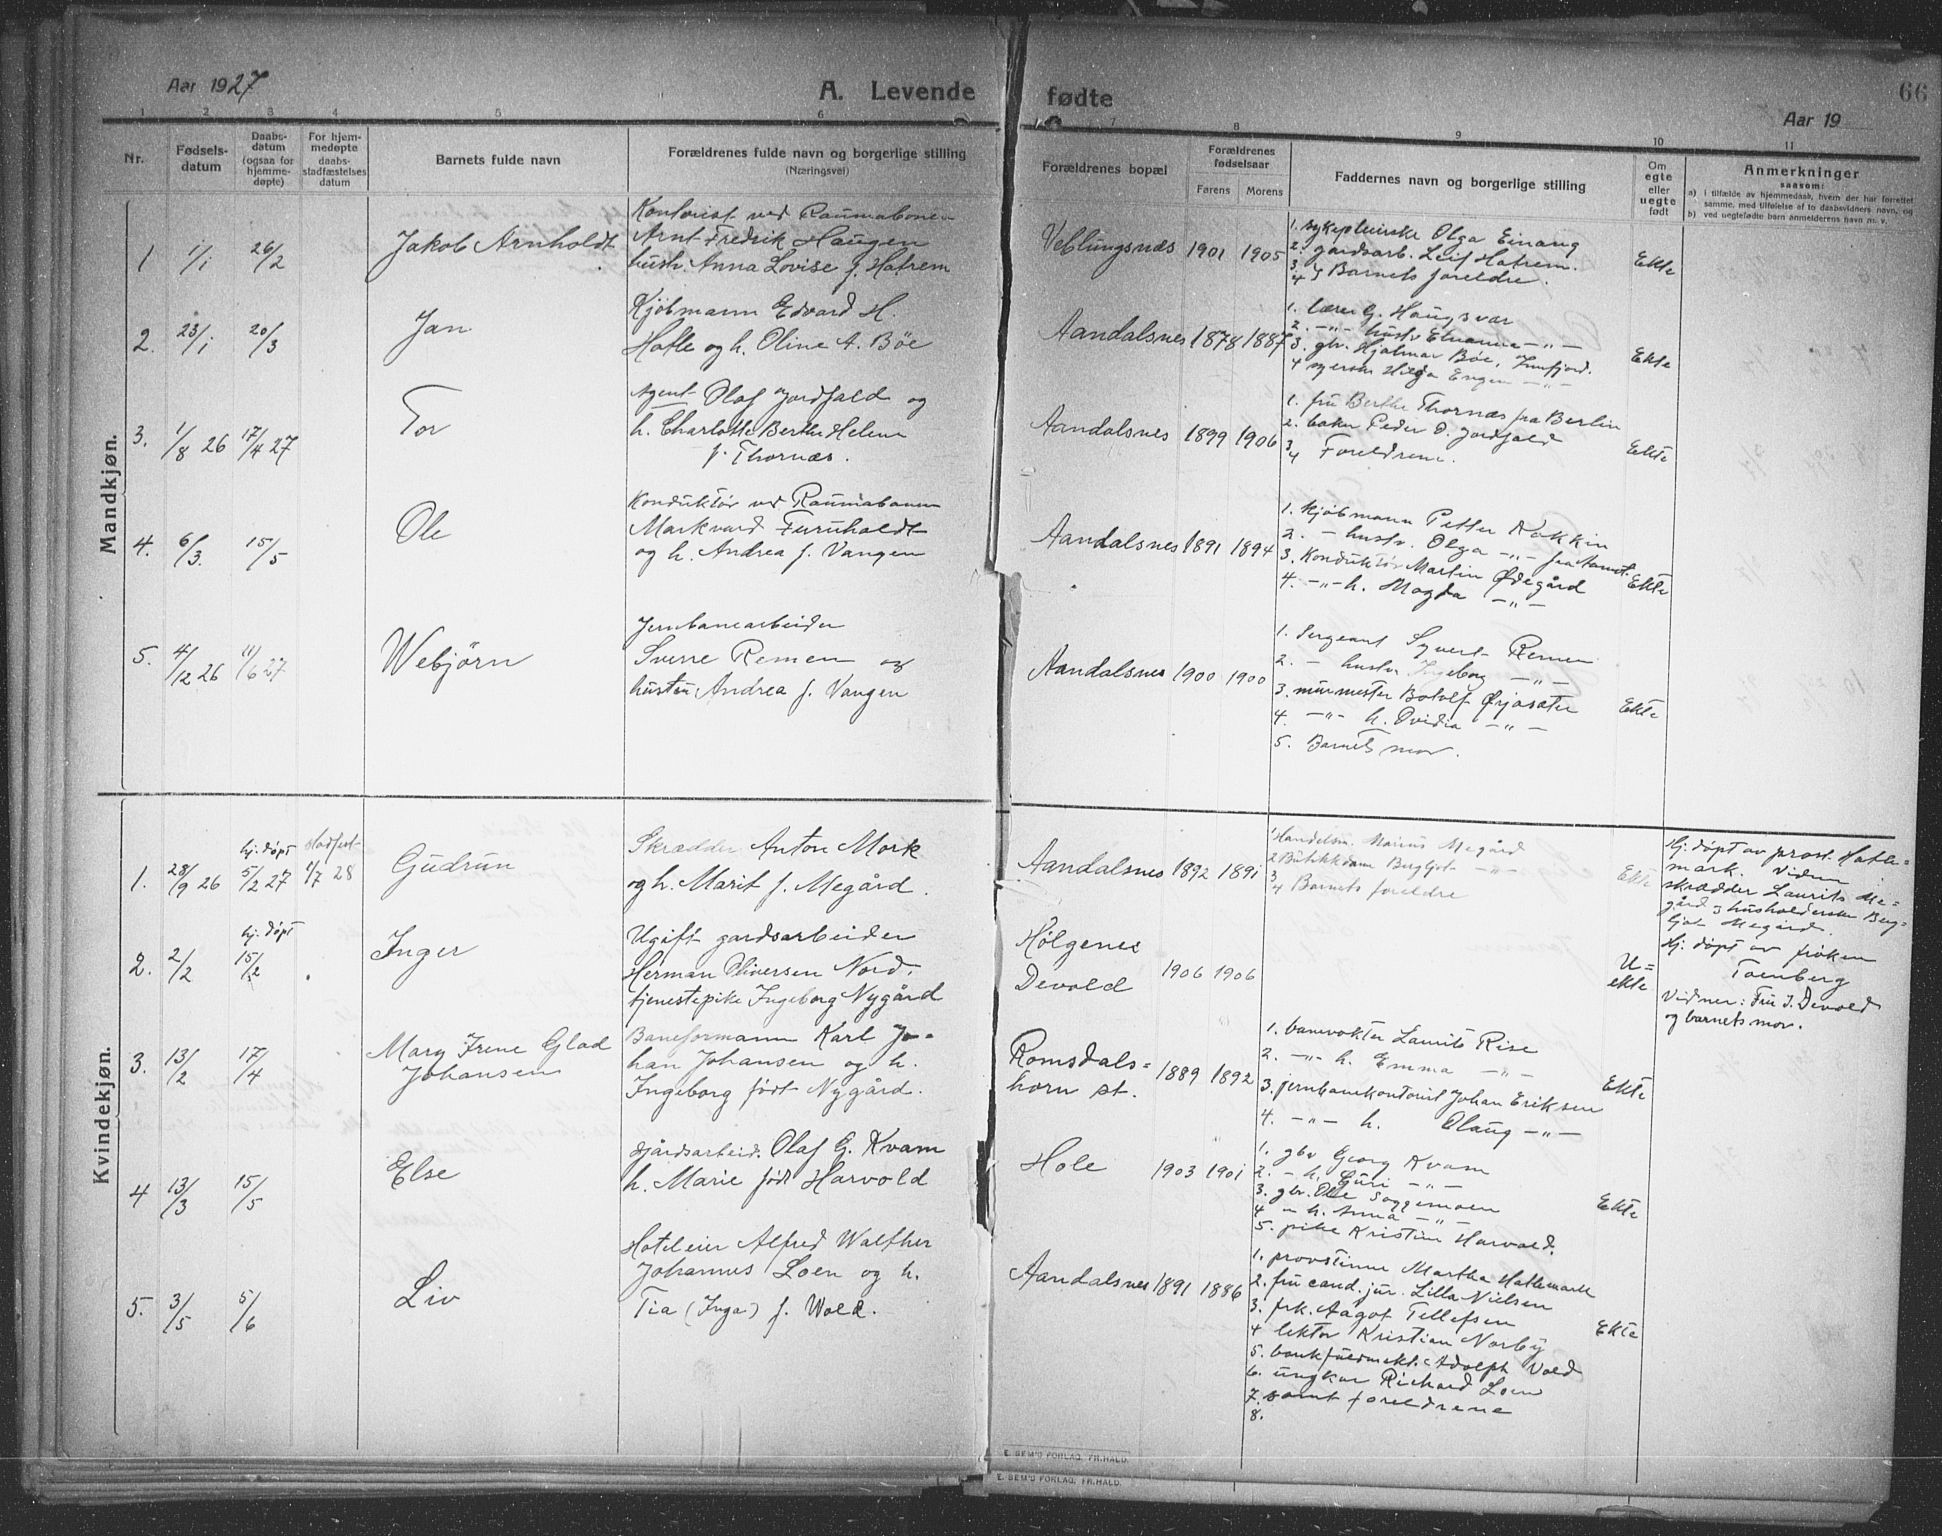 Aar 1927
A. Levende fødte
66
Aar 19
1 2 3 4 5 6 7 8 9 10 11
Nr.
Fødselsdatum
Daabsdatum (ogsaa for hjemmedøpte)
For hjemmedøpte daabsstadfæstelses datum
Barnets fulde navn
Forældrenes fulde navn og borgerlige stilling
(Næringsvei)
Forældrenes bopæl
Forældrenes fødselsaar
Farens Morens
Faddernes navn og borgerlige stilling
Om egte eller uegte født
Anmerkninger
saasom:
a) i tilfælde av hjemmedaab, hvem der har forrettet
samme, med tilføielse af to daabsvidners navn, og
b) ved uegtefødte barn anmelderens navn m. v.
Mandkjøn.
1 1/1 26/2
Jakob Arnholdt
Kontorist ved Raumabanen
Arnt Fredrik Haugen
hush. Anna Lovise f. Hatrem
Veblungsnæs 1901 1905
1. sykepleierske Olga Einang
2. gardsarb. Leif Hatrem.
3
4 } Barnets foreldre.
Ekte
2. 23/1 20/3
Jan
Kjøbmann Edvard H.
Hatle og h. Oline A. Bøe
Aandalsnes 1878 1887
1. lærer G. Haugsvar
2. –"– hustr –"–
3. gbr. Hjalmar Bøe, Innfjord.
4 Helga Engen –"–
Ekte
3. 1/8 26 17/4 27
Tor
Agent Olaf Jordfald og
h. Charlotte Berthe Helene
f. Thornæs.
Aandalsnes 1899 1906
1. fru Berthe Thornæs fra Berlin
2. baker Peder O. Jordfald
3
4 Foreldrene.
Ekte
4. 6/3. 15/5
Ole
Konduktør ved Raumabanen
Markvard Furuholdt
og h. Andrea f. Vangen
Aandalsnes 1891 1894
1. kjøbmann Petter Kokkin
2. – hustr. Olga –"– fra
3. Konduktør Martin Ødegård
4. –"– h. Magda –"–
Ekte
5. 4/12 26 11/6 27
Webjørn
Jernbanearbeider
Sverre Remen og
hustru Andrea f. Vangen
Aandalsnes 1900 1900
1. Sergeant Syvert Remen
2. – hustr Ingeborg –"–
3. murmester Botolf Ørjasæter
4. –"– h. Ovidia –"–
5. Barnets mor.
Ekte
Kvindekjøn.
1. 28/9 26 hj. døpt 5/2 27 stadfest 1/7 28
Gudrun
Skrædder Anton Mork
og h. Marit f. Megård.
Aandalsnes 1892 1891
1 Handelsm. Marius Megård
2 Butikkdame Bergljot –"–
3
4 Barnets foreldre
Ekte
Hj. døpt av prost Hatle=
mark. Vidner
skrædder Laurits Me=
gård og husholderske Berg=
ljot Megård.
2. 2/2 hj. døpt 15/2
Inger
Ugift gardsarbeider
Herman Oliversen Nord,
tjenestepike Ingeborg Nygård
Hølgenes
Devold
1906 1906
U=
ekte
Hj. døpt av frøken
Tonberg
Vidner: Fru J. Devold
og barnets mor.
3. 13/2 17/4
Mary Irene Glad
Johansen
Baneformann Karl Jo-
han Johansen og h.
Ingeborg født Nygård.
Romsdals=
horn st.
1889 1892
1. banevokter Laurits Rise
2. –"– h. Emma –"–
3. jernbanekontorist Johan Eriksen
4. –"– h. Olaug –"–
Ekte
4 13/3 15/5
Else
Gårdsarbeid. Olaf G. Kvam
h. Marie født Harvold
Hole 1903 1901
1. gbr Georg Kvam
2. – h. Guri –"–
3. gbr. Ole Soggemoen
4 – h. Anna –"–
5. pike Kristine Harvold.
Ekte
5. 3/5 5/6
Liv
Hoteleier Alfred Walther
Johannes Loen og h.
Tia (Inga) f. Wold.
Aandalsnes 1891 1886
1. provstinne Martha Hatlemark
2. fru cand. jur. Lilla Nielsen
3. frk. Aagot Tellefsen
4 lektor Kristian Norby
5. bankfuldmekt. Adolph Vold
6. ungkar Richard Loen
7. samt foreldrene
8.
Ekte
E. SEM'S FORLAG, FR.HALD.
E. SEM'S FORLAG, FR.HALD.